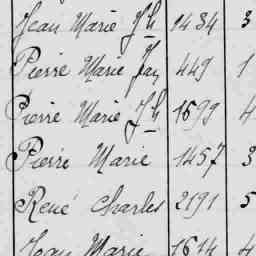 Jean Marie Jh 1484 3
Pierre Marie Jean 449 1
Pierre Marie Jh 1699 4
Pierre Marie 1457 3
René Charles 2191 5
Jean Marie 1614 4